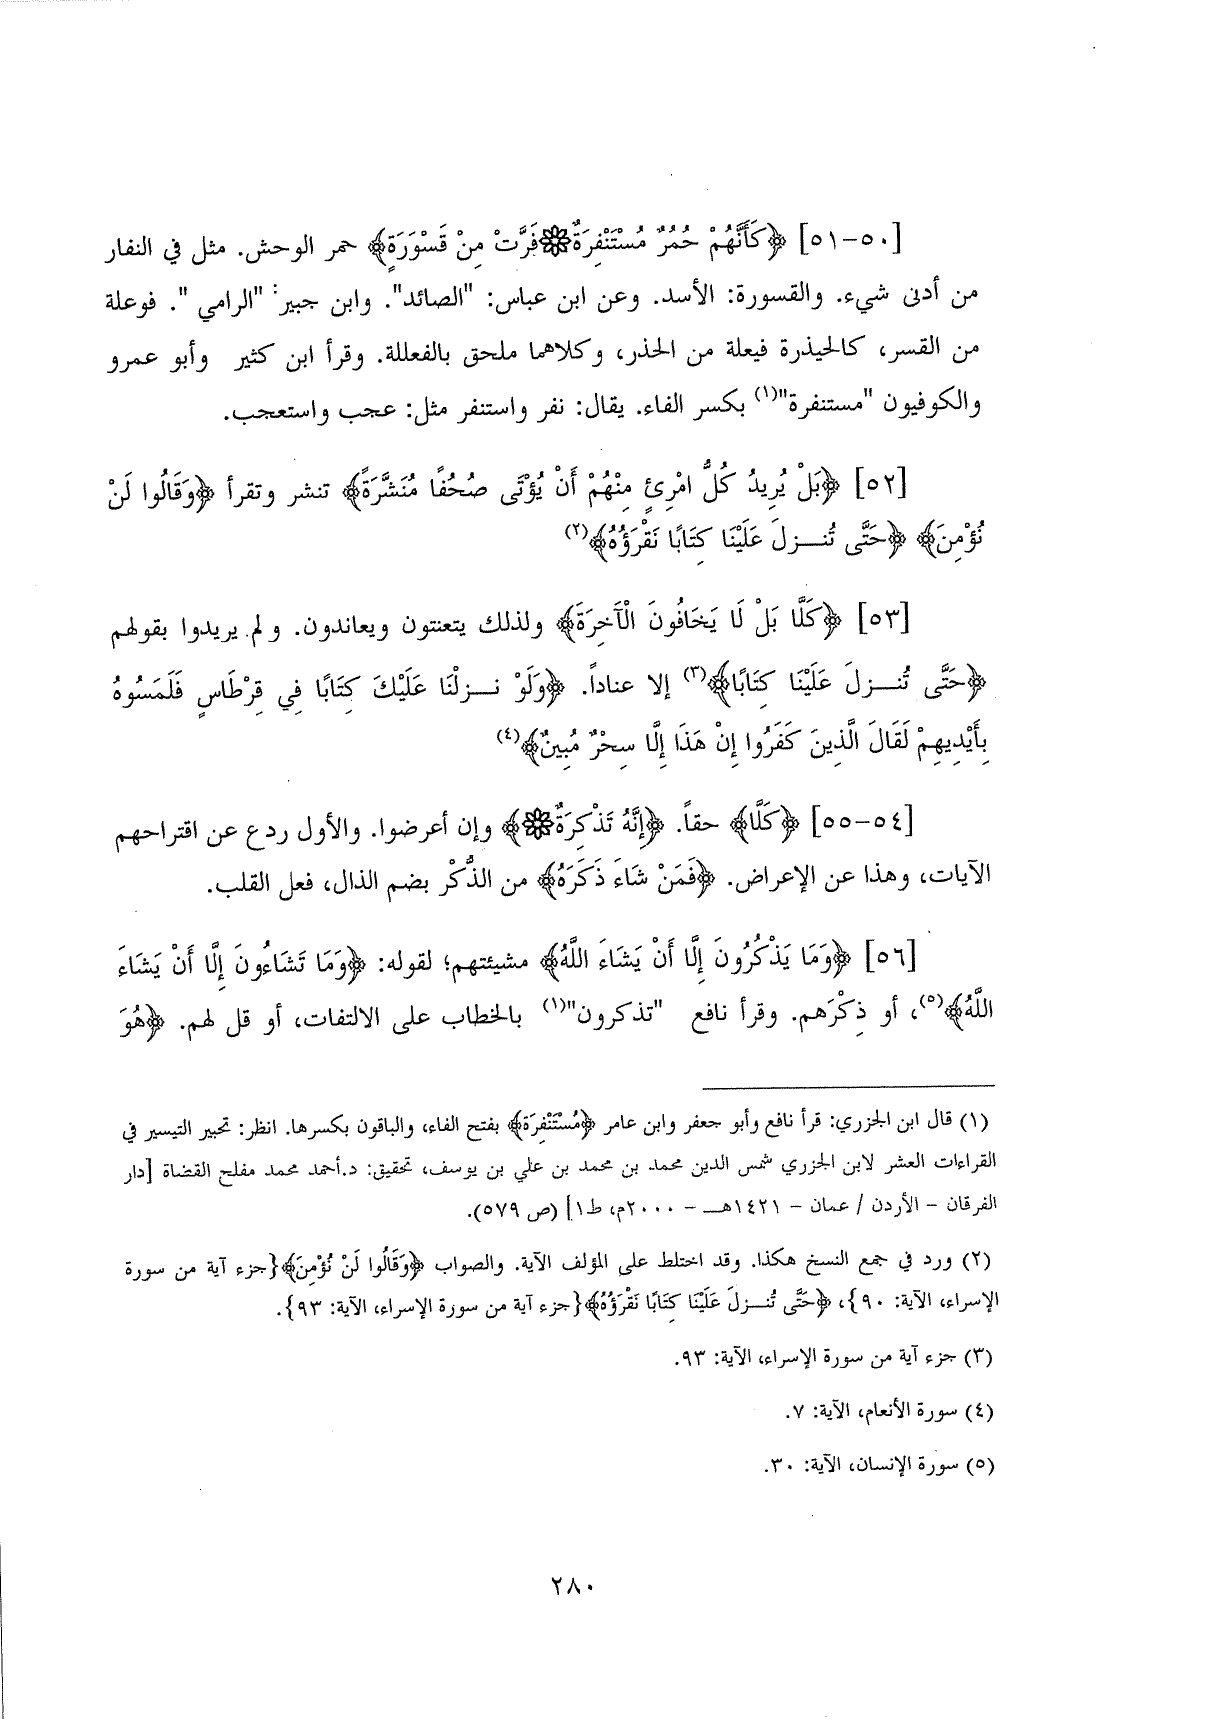 [٥٠-٥١] ﴿كَأَنَّهُمْ حُمُرٌ مُسْتَنْفِرَةٌ۞فَرَّتْ مِنْ قَسْوَرَةٍ﴾ حمر الوحش. مثل في النفار
من أدنى شيء. والقسورة: الأسد. وعن ابن عباس: "الصائد". وابن جبير: "الرامي ". فوعلة
من القسر، كالحيذرة فيعلة من الحذر، وكلاهما ملحق بالفعللة. وقرأ ابن كثير وأبو عمرو
والكوفيون "مستنفرة"(١) بكسر الفاء. يقال: نفر واستنفر مثل: عجب واستعجب.
[٥٢] ﴿بَلْ يُرِيدُ كُلُّ امْرِئٍ مِنْهُمْ أَنْ يُؤْتَى صُحُفًا مُنَشَّرَةً﴾ تنشر وتقرأ ﴿وَقَالُوا لَنْ
نُؤْمِنَ﴾ ﴿حَتَّى تُنــزلَ عَلَيْنَا كِتَابًا نَقْرَؤُهُ﴾(٢)
[٥٣] ﴿كَلَّا بَلْ لَا يَخَافُونَ الْآخِرَةَ﴾ ولذلك يتعنتون ويعاندون. ولم يريدوا بقولهم
﴿حَتَّى تُنــزلَ عَلَيْنَا كِتَابًا﴾(٣) إلا عناداً. ﴿وَلَوْ نــزلْنَا عَلَيْكَ كِتَابًا فِي قِرْطَاسٍ فَلَمَسُوهُ
بِأَيْدِيهِمْ لَقَالَ الَّذِينَ كَفَرُوا إِنْ هَذَا إِلَّا سِحْرٌ مُبِينٌ﴾(٤)
[٥٤-٥٥] ﴿كَلَّا﴾ حقاً. ﴿إِنَّهُ تَذْكِرَةٌ۞﴾ وإن أعرضوا. والأول ردع عن اقتراحهم
الآيات، وهذا عن الإعراض. ﴿فَمَنْ شَاءَ ذَكَرَهُ﴾ من الذُّكْر بضم الذال، فعل القلب.
[٥٦] ﴿وَمَا يَذْكُرُونَ إِلَّا أَنْ يَشَاءَ اللَّهُ﴾ مشيئتهم؛ لقوله: ﴿وَمَا تَشَاءُونَ إِلَّا أَنْ يَشَاءَ
اللَّهُ﴾(٥)، أو ذِكْرَهم. وقرأ نافع "تذكرون"(١) بالخطاب على الالتفات، أو قل لهم. ﴿هُوَ
(١) قال ابن الجزري: قرأ نافع وأبو جعفر وابن عامر ﴿مُسْتَنْفِرَة﴾ بفتح الفاء، والباقون بكسرها. انظر: تحبير التيسير في
القراءات العشر لابن الجزري شمس الدين محمد بن محمد بن علي بن يوسف، تحقيق: د.أحمد محمد مفلح القضاة [دار
الفرقان – الأردن / عمان – ١٤٢١هــ – ٢٠٠٠م، ط١] (ص ٥٧٩).
(٢) ورد في جمع النسخ هكذا. وقد اختلط على المؤلف الآية. والصواب ﴿وَقَالُوا لَنْ نُؤْمِنَ﴾{جزء آية من سورة
الإسراء، الآية: ٩٠}، ﴿حَتَّى تُنــزلَ عَلَيْنَا كِتَابًا نَقْرَؤُهُ﴾{جزء آية من سورة الإسراء، الآية: ٩٣}.
(٣) جزء آية من سورة الإسراء، الآية: ٩٣.
(٤) سورة الأنعام، الآية: ٧.
(٥) سورة الإنسان، الآية: ٣٠.
٢٨٠